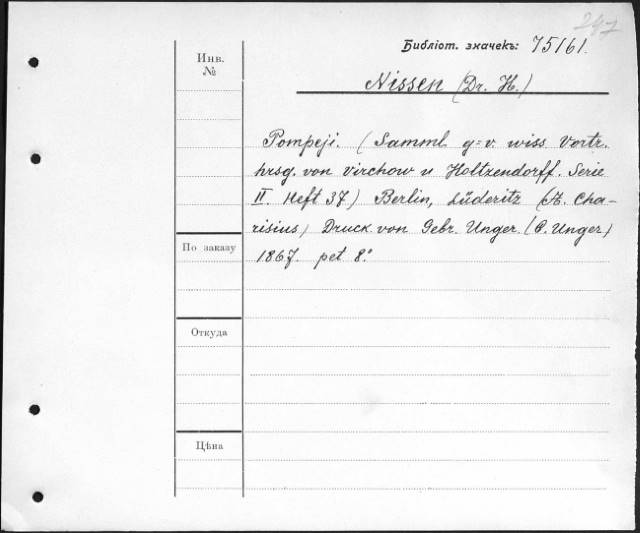 247
Библіот. значекъ: 75/61.
Инв.
№
Nissen (Dr. H.)
Pompeji. (Samml. g=v. wiss. Vortr.
hrsg. von Virchow u Holtzendorff. Serie
II. Heft 37) Berlin, Lüderitz (A. Cha-
risius) Druck von Gebr. Unger. (C. Unger)
1867. pet 8.°
По заказу
Откуда
Цѣна